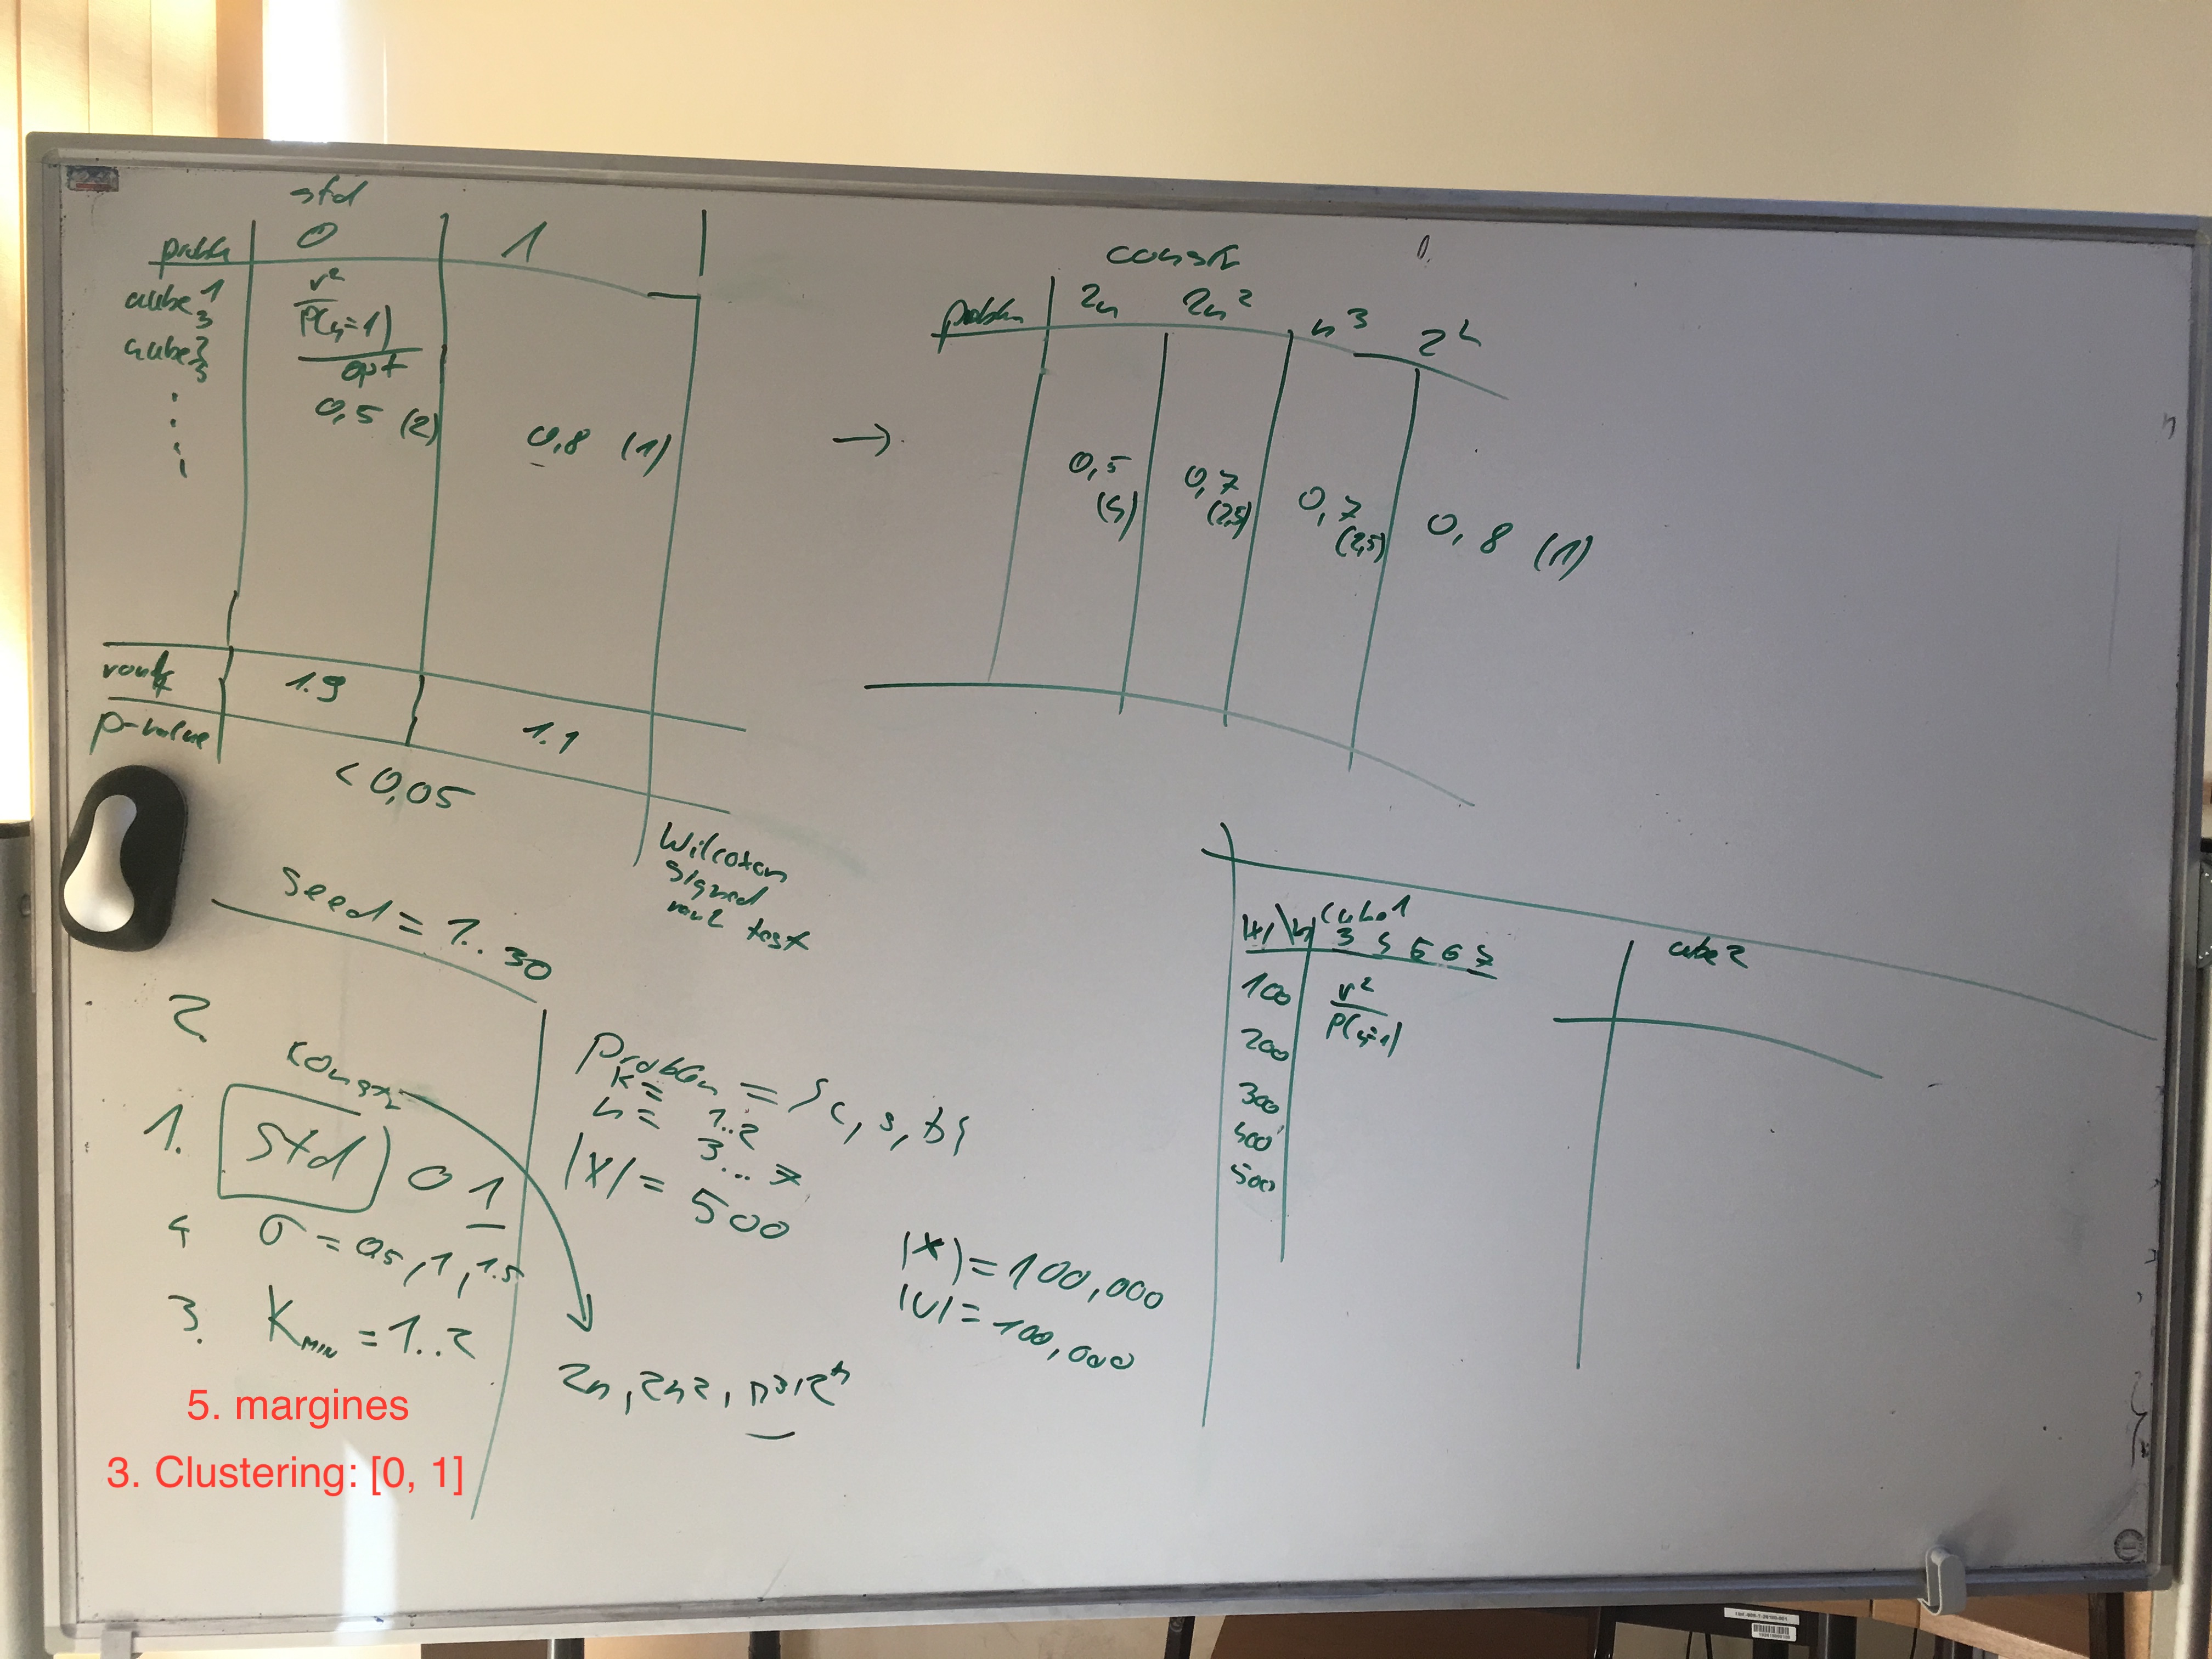 std
problem 0 1
cube 1 3
cube 2 3
r²
P(y=1)
opt
0,5 (2) 0,8 (1)
rank 1.9 1.1
p-value
< 0,05
Wilcoxon
signed
rank test
→
const
problem 2n 2n² n³ 2ⁿ
0,5 0,7 0,7 0,8 (1)
(4) (2,5) (2,5)
seed = 1..30
2. const
1. std 0 1
4 σ = 0.5, 1, 1.5
3. K MIN = 1..2
5. margines
3. Clustering: [0, 1]
Problem = {c, s, b}
k = 1..2
n = 3...7
|X| = 500
2n, 2n2, n3, 2ⁿ
|X| = 100,000
|U| = 100,000
cube 1
|X| \ n 3 4 5 6 7
100
200
300
400
500
r²
P(y=1)
cube 2